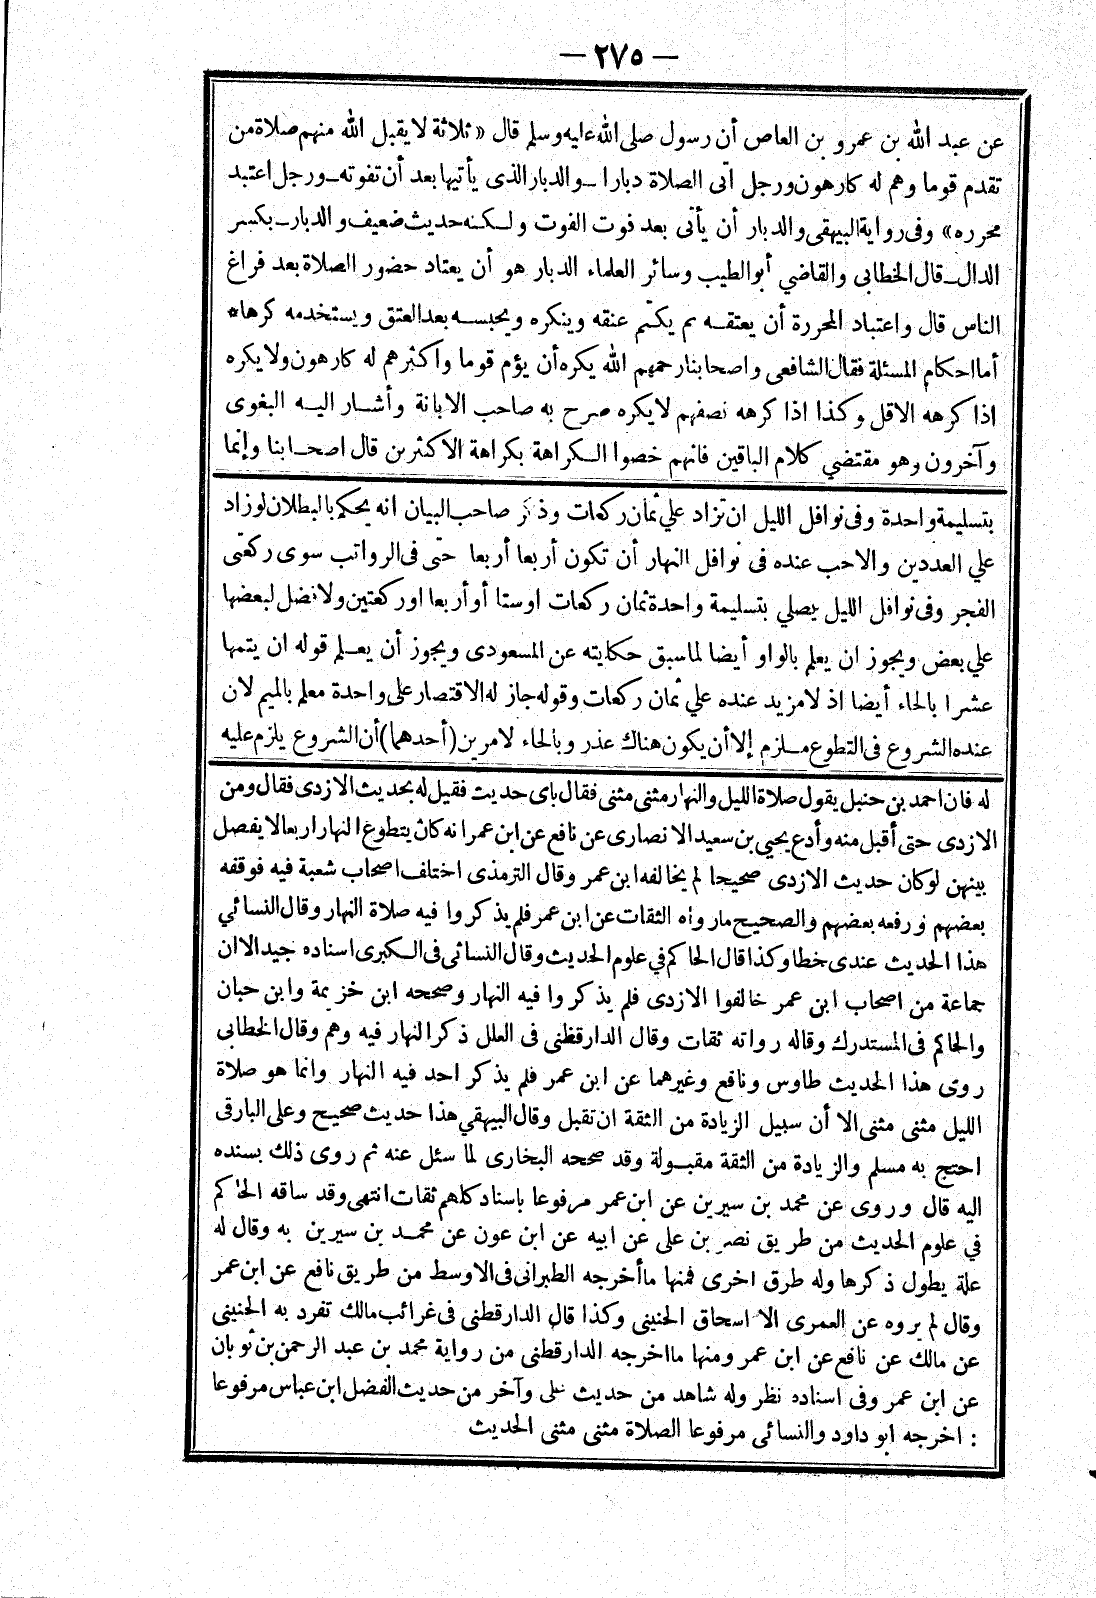 — ٢٧٥ —
عن عبد الله بن عمرو بن العاص أن رسول صلى الله عليه وسلم قال «ثلاثة لا يقبل الله منهم صلاة من
تقدم قوما وهم له كارهون ورجل اتى الصلاة دبارا ــ والدبار الذى يأتيها بعد أن تفوته ــ ورجل اعتبد
محرره» وفى رواية البيهقى والدبار أن يأتى بعد فوت الفوت ولكنه حديث ضعيف والدبار ــ بكسر
الدال ــ قال الخطابى والقاضي أبو الطيب وسائر العلماء الدبار هو أن يعتاد حضور الصلاة بعد فراغ
الناس قال واعتباد المحررة أن يعتقه ثم يكتم عتقه وينكره ويحبسه بعد العتق ويستخدمه كرها *
أما احكام المسئلة فقال الشافعى واصحابنا رحمهم الله يكره أن يؤم قوما وأكثرهم له كارهون ولا يكره
اذا كرهه الاقل وكذا اذا كرهه نصفهم لا يكره صرح به صاحب الابانة وأشار اليه البغوى
وآخرون وهو مقتضي كلام الباقين فانهم خصوا الكراهة بكراهة الاكثرين قال اصحابنا وإنما
بتسليمة واحدة وفى نوافل الليل ان تزاد علي ثمان ركعات وذكر صاحب البيان انه يحكم بالبطلان لو زاد
علي العددين والاحب عنده فى نوافل النهار أن تكون أربعا أربعا حتى فى الرواتب سوى ركعتى
الفجر وفى نوافل الليل يصلي بتسليمة واحدة ثمان ركعات اوستا أو أربعا اوركعتين ولا فضل لبعضها
علي بعض ويجوز ان يعلم بالواو أيضا لما سبق حكايته عن المسعودى ويجوز أن يعلم قوله ان يتمها
عشرا بالحاء أيضا اذ لا مزيد عنده علي ثمان ركعات وقوله جاز له الاقتصار على واحدة معلم بالميم لان
عنده الشروع فى التطوع ملزم إلا أن يكون هناك عذر وبالحاء لامرين (أحدهما) أن الشروع يلزم عليه
له فان احمد بن حنبل يقول صلاة الليل والنهار مثنى مثنى فقال باى حديث فقيل له بحديث الازدى فقال ومن
الازدى حتى أقبل منه وأدع يحيي بن سعيد الانصارى عن نافع عن ابن عمر انه كان يتطوع النهار اربعا لا يفصل
بينهن لو كان حديث الازدى صحيحا لم يخالفه ابن عمر وقال الترمذى اختلف اصحاب شعبة فيه فوقفه
بعضهم ورفعه بعضهم والصحيح مارواه الثقات عن ابن عمر فلم يذكروا فيه صلاة النهار وقال النسائي
هذا الحديث عندى خطا وكذا قال الحاكم في علوم الحديث وقال النسائى فى الكبرى اسناده جيد الا ان
جماعة من اصحاب ابن عمر خالفوا الازدى فلم يذكروا فيه النهار وصححه ابن خزيمة وابن حبان
والحاكم فى المستدرك وقاله رواته ثقات وقال الدارقطنى فى العلل ذكر النهار فيه وهم وقال الخطابى
روى هذا الحديث طاوس ونافع وغيرهما عن ابن عمر فلم يذكر احد فيه النهار وانما هو صلاة
الليل مثنى مثنى الا أن سبيل الزيادة من الثقة ان تقبل وقال البيهقي هذا حديث صحيح وعلى البارقى
احتج به مسلم والزيادة من الثقة مقبولة وقد صححه البخارى لما سئل عنه ثم روى ذلك بسنده
اليه قال وروى عن محمد بن سيرين عن ابن عمر مرفوعا باسناد كلهم ثقات انتهى وقد ساقه الحاكم
في علوم الحديث من طريق نصر بن على عن ابيه عن ابن عون عن محمد بن سيرين به وقال له
علة يطول ذكرها وله طرق اخرى فمنها ما أخرجه الطبرانى فى الاوسط من طريق نافع عن ابن عمر
وقال لم يروه عن العمرى الا اسحاق الحنينى وكذا قال الدارقطنى فى غرائب مالك تفرد به الحنينى
عن مالك عن نافع عن ابن عمر ومنها ما اخرجه الدارقطنى من رواية محمد بن عبد الرحمن بن ثوبان
عن ابن عمر وفى اسناده نظر وله شاهد من حديث على وآخر من حديث الفضل ابن عباس مرفوعا
: اخرجه ابو داود والنسائى مرفوعا الصلاة مثنى مثنى الحديث